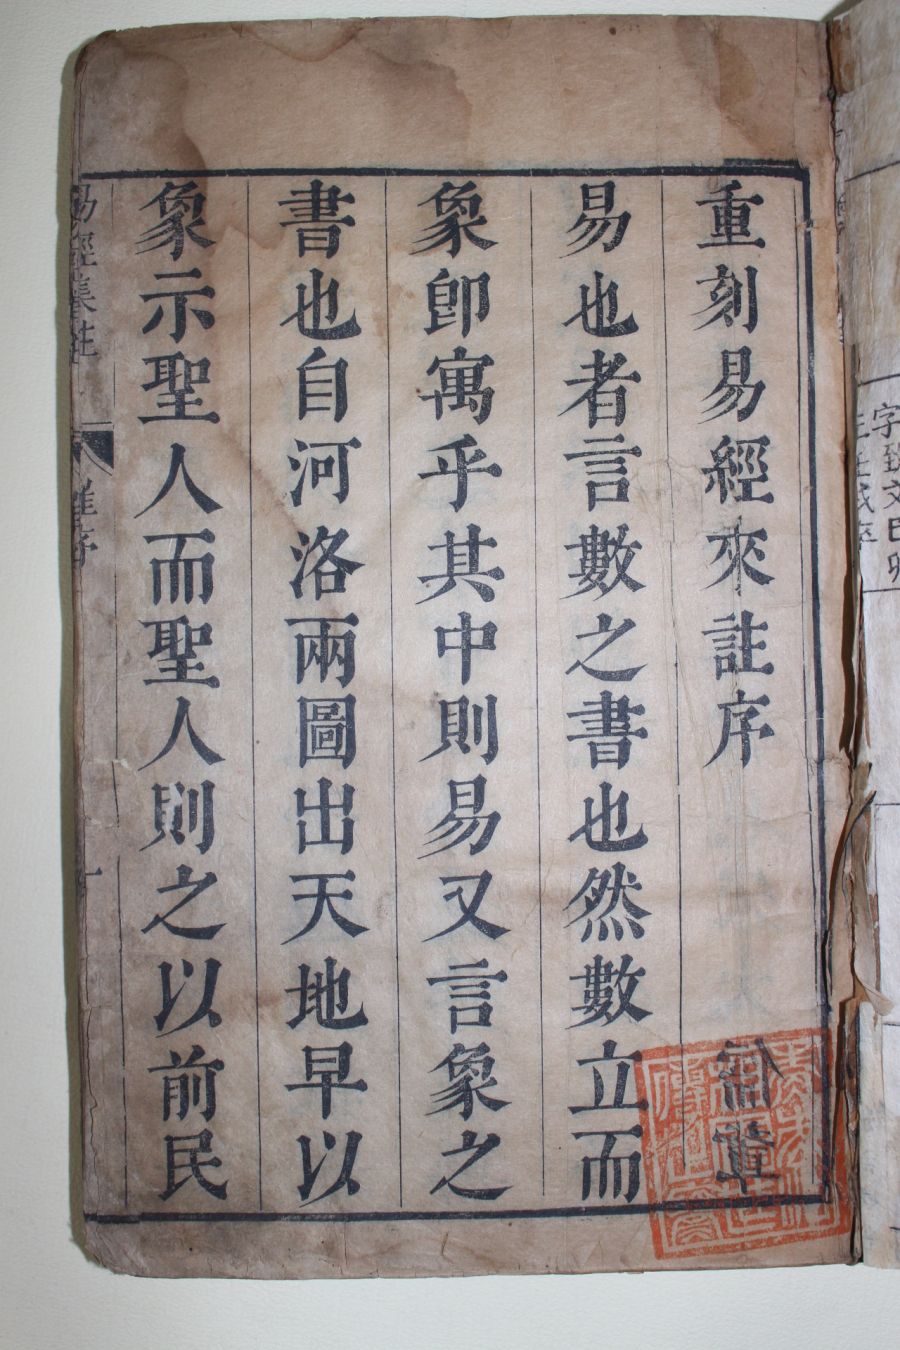 重刻易經來註序
易也者言數之書也然數立而
象卽寓乎其中則易又言象之
書也自河洛兩圖出天地早以
象示聖人而聖人則之以前民
易經集註
崔序
一
字欽文巳卯